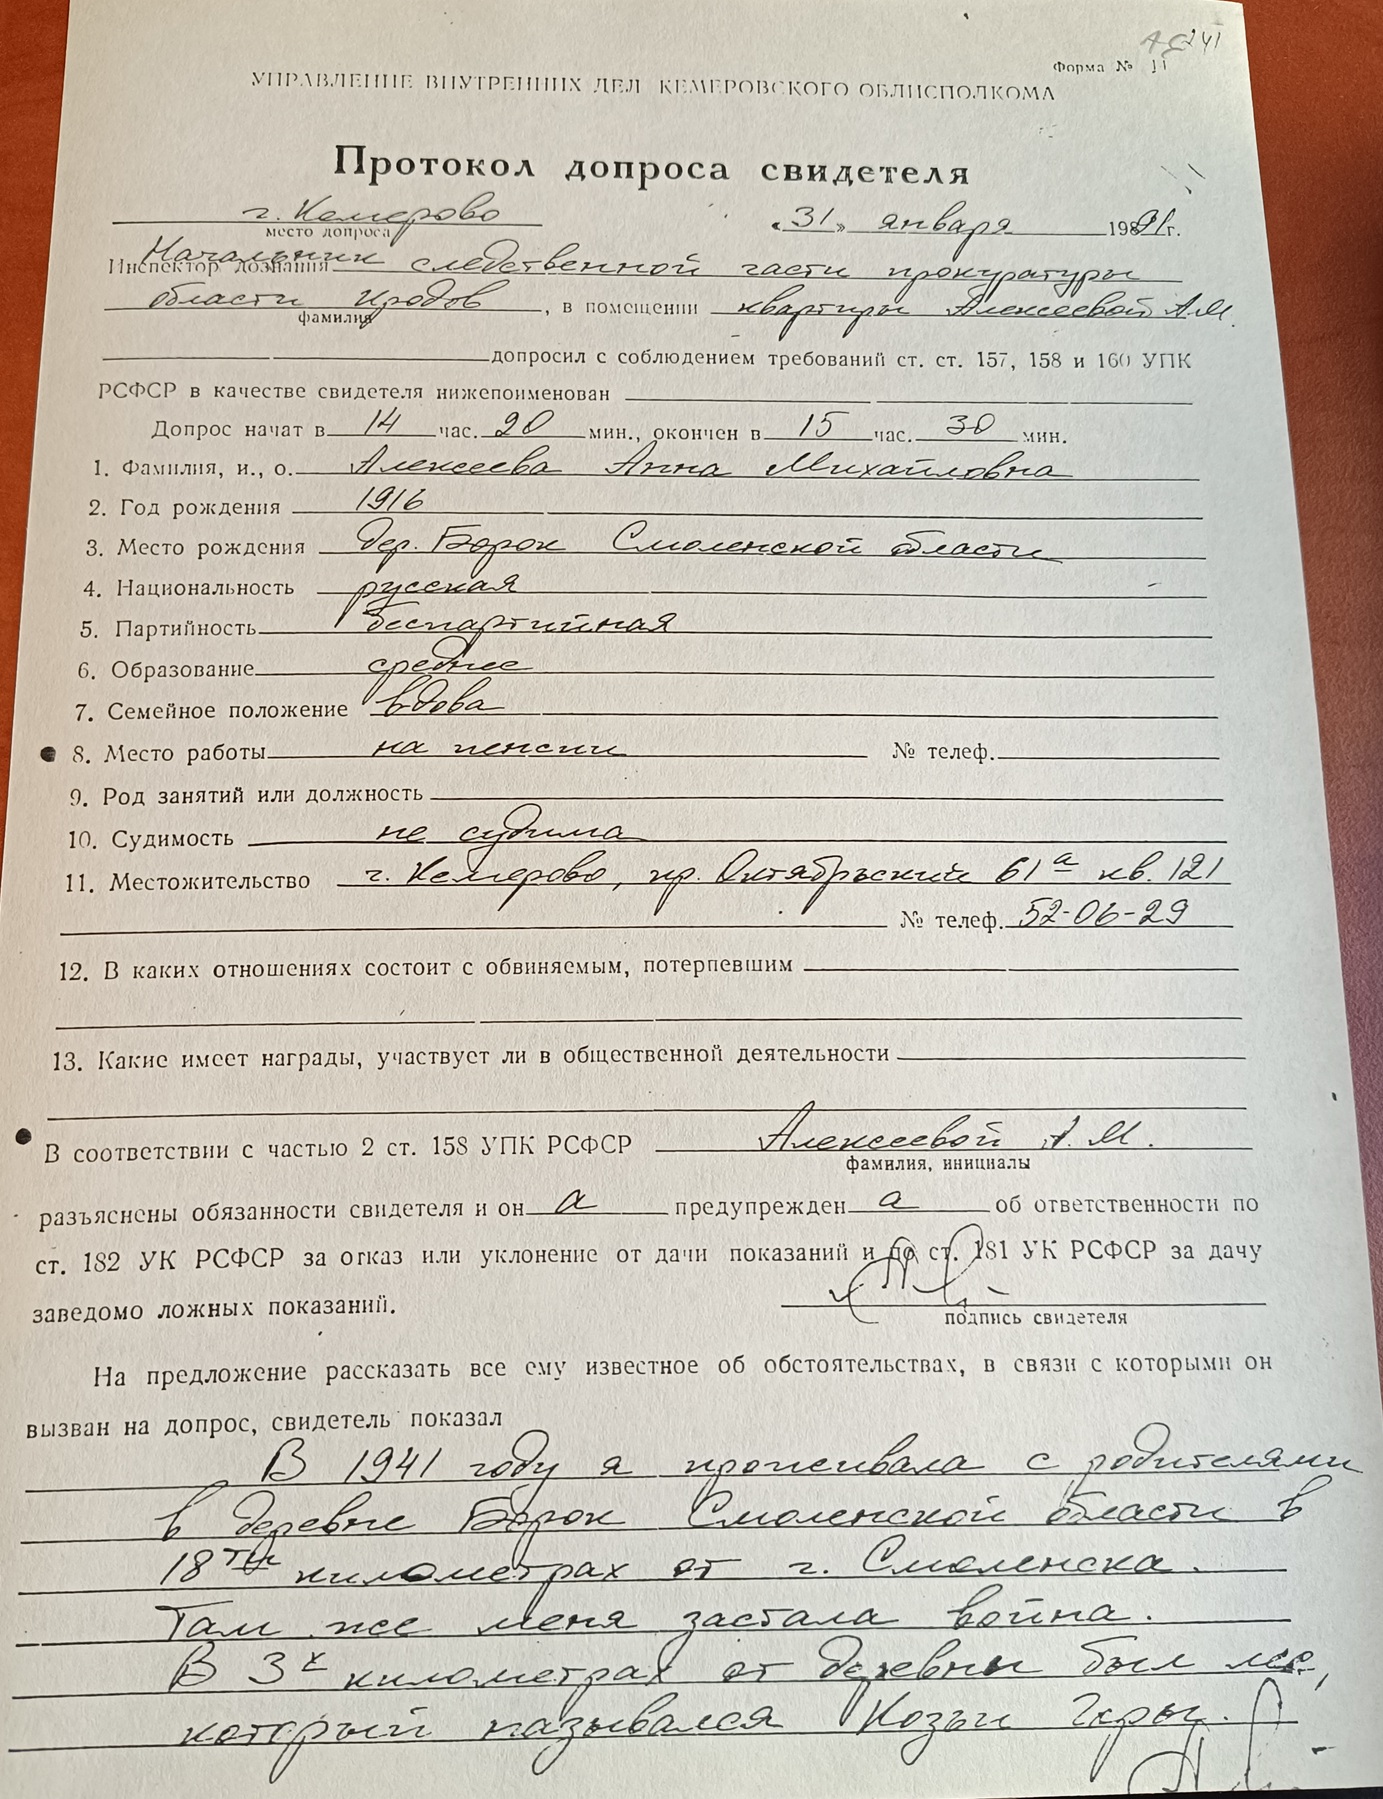 241
Форма № 11
УПРАВЛЕНИЕ ВНУТРЕННИХ ДЕЛ КЕМЕРОВСКОГО ОБЛИСПОЛКОМА
Протокол допроса свидетеля
г. Кемерово «31» января 1991г.
место допроса
Инспектор дознания Начальник следственной части прокуратуры
области , в помещении квартиры Алексеевой А.М.
фамилия
допросил с соблюдением требований ст. ст. 157, 158 и 160 УПК
РСФСР в качестве свидетеля нижепоименован
Допрос начат в 14 час. 20 мин., окончен в 15 час. 30 мин.
1. Фамилия, и., о. Алексеева Анна Михайловна
2. Год рождения 1916
3. Место рождения дер. Борок Смоленской области
4. Национальность русская
5. Партийность беспартийная
6. Образование среднее
7. Семейное положение вдова
8. Место работы на пенсии № телеф.
9. Род занятий или должность
10. Судимость не судима
11. Местожительство г. Кемерово, пр. Октябрьский 61а кв. 121
№ телеф. 52-06-29
12. В каких отношениях состоит с обвиняемым, потерпевшим
13. Какие имеет награды, участвует ли в общественной деятельности
В соответствии с частью 2 ст. 158 УПК РСФСР Алексеевой А. М.
фамилия, инициалы
разъяснены обязанности свидетеля и он а предупрежден а об ответственности по
ст. 182 УК РСФСР за отказ или уклонение от дачи показаний и по ст. 181 УК РСФСР за дачу
заведомо ложных показаний.
подпись свидетеля
На предложение рассказать все ему известное об обстоятельствах, в связи с которыми он
вызван на допрос, свидетель показал
В 1941 году я проживала с родителями
в деревне Борок Смоленской области в
18ти километрах от г. Смоленска.
Там же меня застала война.
В 3х километрах от деревни был лес,
который назывался Козьи Горы.